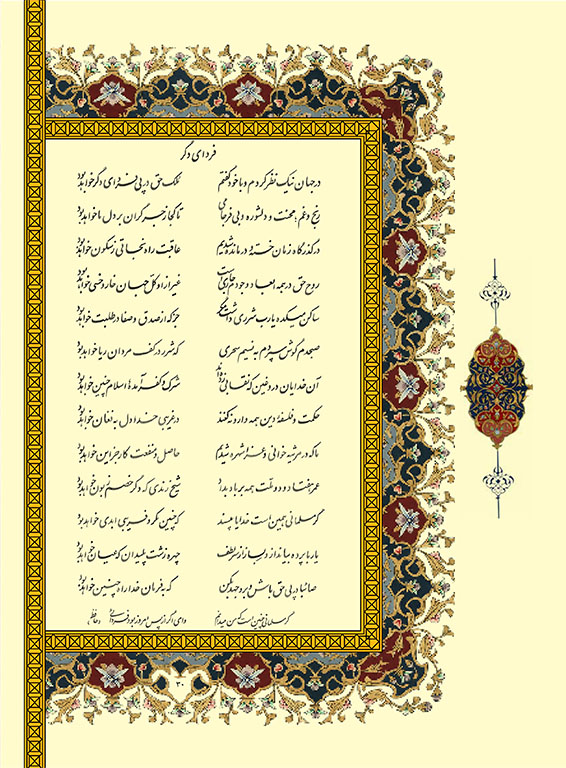 فردای دگر
در جهان نیک نظر کردم و با خود گفتم ملک حق در پی فردای دگر خواهد بود
رنج و غم، محنت و دلشوره و بی فرجامی تا کجا زجر گران بر دل ما خواهد بود
در گذرگاه زمان خسته و درمانده شدیم عاقبت راه نجاتی ز سکون خواهد بود
روح حق در همه ابعاد وجودم جاریست غیر از او کل جهان خار و خسی خواهد بود
ساکن میکده یارب شرری داشت جز که از صدق و صفا در طلبت خواهد بود
صبحدم گوش سپردم به نسیم سحری که شرر در کف مردان ریا خواهد بود
آن خدایان دروغین که نقابی زده اند شرک و کفر آمد اسلام چنین خواهد بود
حکمت و فلسفه دین همه وارونه کنند در غریبی خدا دل به فغان خواهد بود
ما که در مرثیه خوانی و عزا شهره شدیم حاصل و منفعت کار جز این خواهد بود
عمر هفتاد و دو ملت همه بر باد بداد شیخ رندی که دگر خصم بون خواهد بود
گر مسلمانی همین است خدایا مپسند که چنین مکر و فریبی ابدی خواهد بود
یارب پرده بینداز دری باز از لطف چهره زشت پلیدان که عیان خواهد بود
صائبا در پی حق باش و بروجهد بکن که به فرمان خدا راه چنین خواهد بود
گر مسلمانی چنین است که من میدانم وای اگر از پس امروز بود فردایی حافظ
۲۰